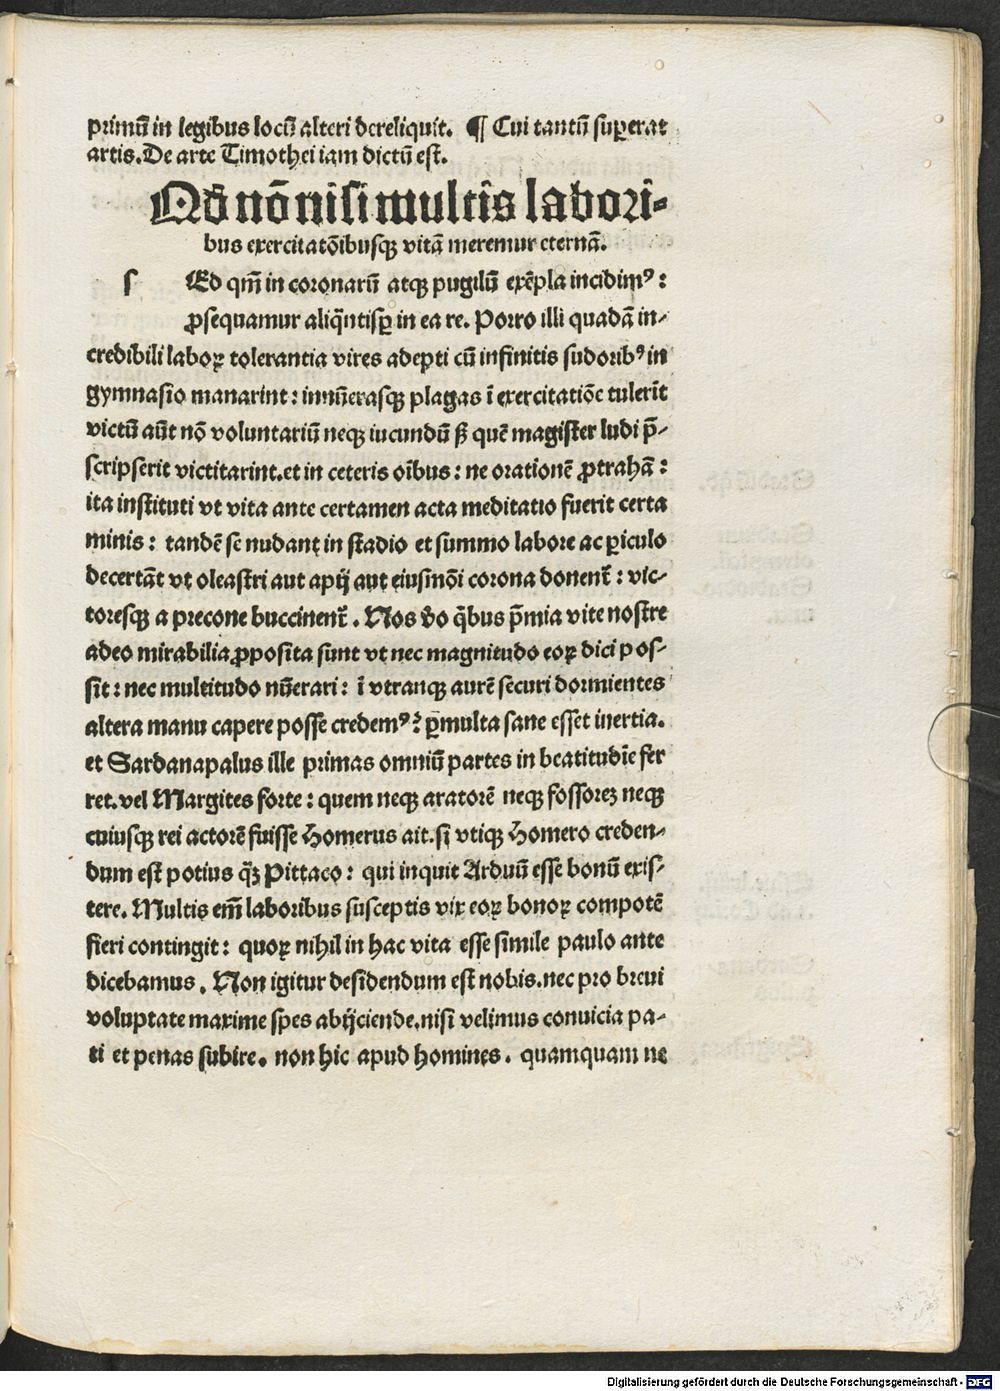 primū in legibus locū alteri dereliquit. ¶ Cui tantū superat
artis. De arte Timothei iam dictū est.
Qđ nō nisi multis labori-
bus exercitatōibusqꝫ vitā meremur eternā.
s Ed qm̄ in coronarū atqꝫ pugilū exēpla incidimꝰ :
ꝓsequamur aliq̄ntisꝑ in ea re. Porro illi quadā in-
credibili laboꝝ tolerantia vires adepti cū infinitis sudoribꝰ in
gymnasio manarint : innūerasqꝫ plagas ī exercitatiōe tulerīt
victū aūt nō voluntariū neqꝫ iucundū ß quē magister ludi p̄-
scripserit victitarint. et in ceteris oībus : ne orationē ꝓtrahā :
ita instituti vt vita ante certamen acta meditatio fuerit certa
minis : tandē se nudant in stadio et summo labore ac ꝑiculo
decertāt vt oleastri aut apij aut eiusmōi corona donent̄ : vic-
toresqꝫ a precone buccinent̄ . Nos v̄o q̄bus p̄mia vite nostre
adeo mirabilia ꝓposita sunt vt nec magnitudo eoꝝ dici pos-
sit : nec multitudo nūerari : ī vtranqꝫ aurē securi dormientes
altera manu capere posse credemꝰ ? ꝑmulta sane esset inertia.
et Sardanapalus ille primas omniū partes in beatitudīe fer
ret. vel Margites forte : quem neqꝫ aratorē neqꝫ fossorē neqꝫ
cuiusqꝫ rei actorē fuisse Homerus ait. si vtiqꝫ Homero creden-
dum est potius q̄ꝫ Pittaco : qui inquit Arduū esse bonū exis-
tere. Multis em̄ laboribus susceptis vix eoꝝ bonoꝝ compotē
fieri contingit : quoꝝ nihil in hac vita esse simile paulo ante
dicebamus . Non igitur desidendum est nobis. nec pro breui
voluptate maxime spes abijciende. nisi velimus conuicia pa-
ti et penas subire. non hic apud homines . quamquam ne
Digitalisierung gefördert durch die Deutsche Forschungsgemeinschaft - DFG